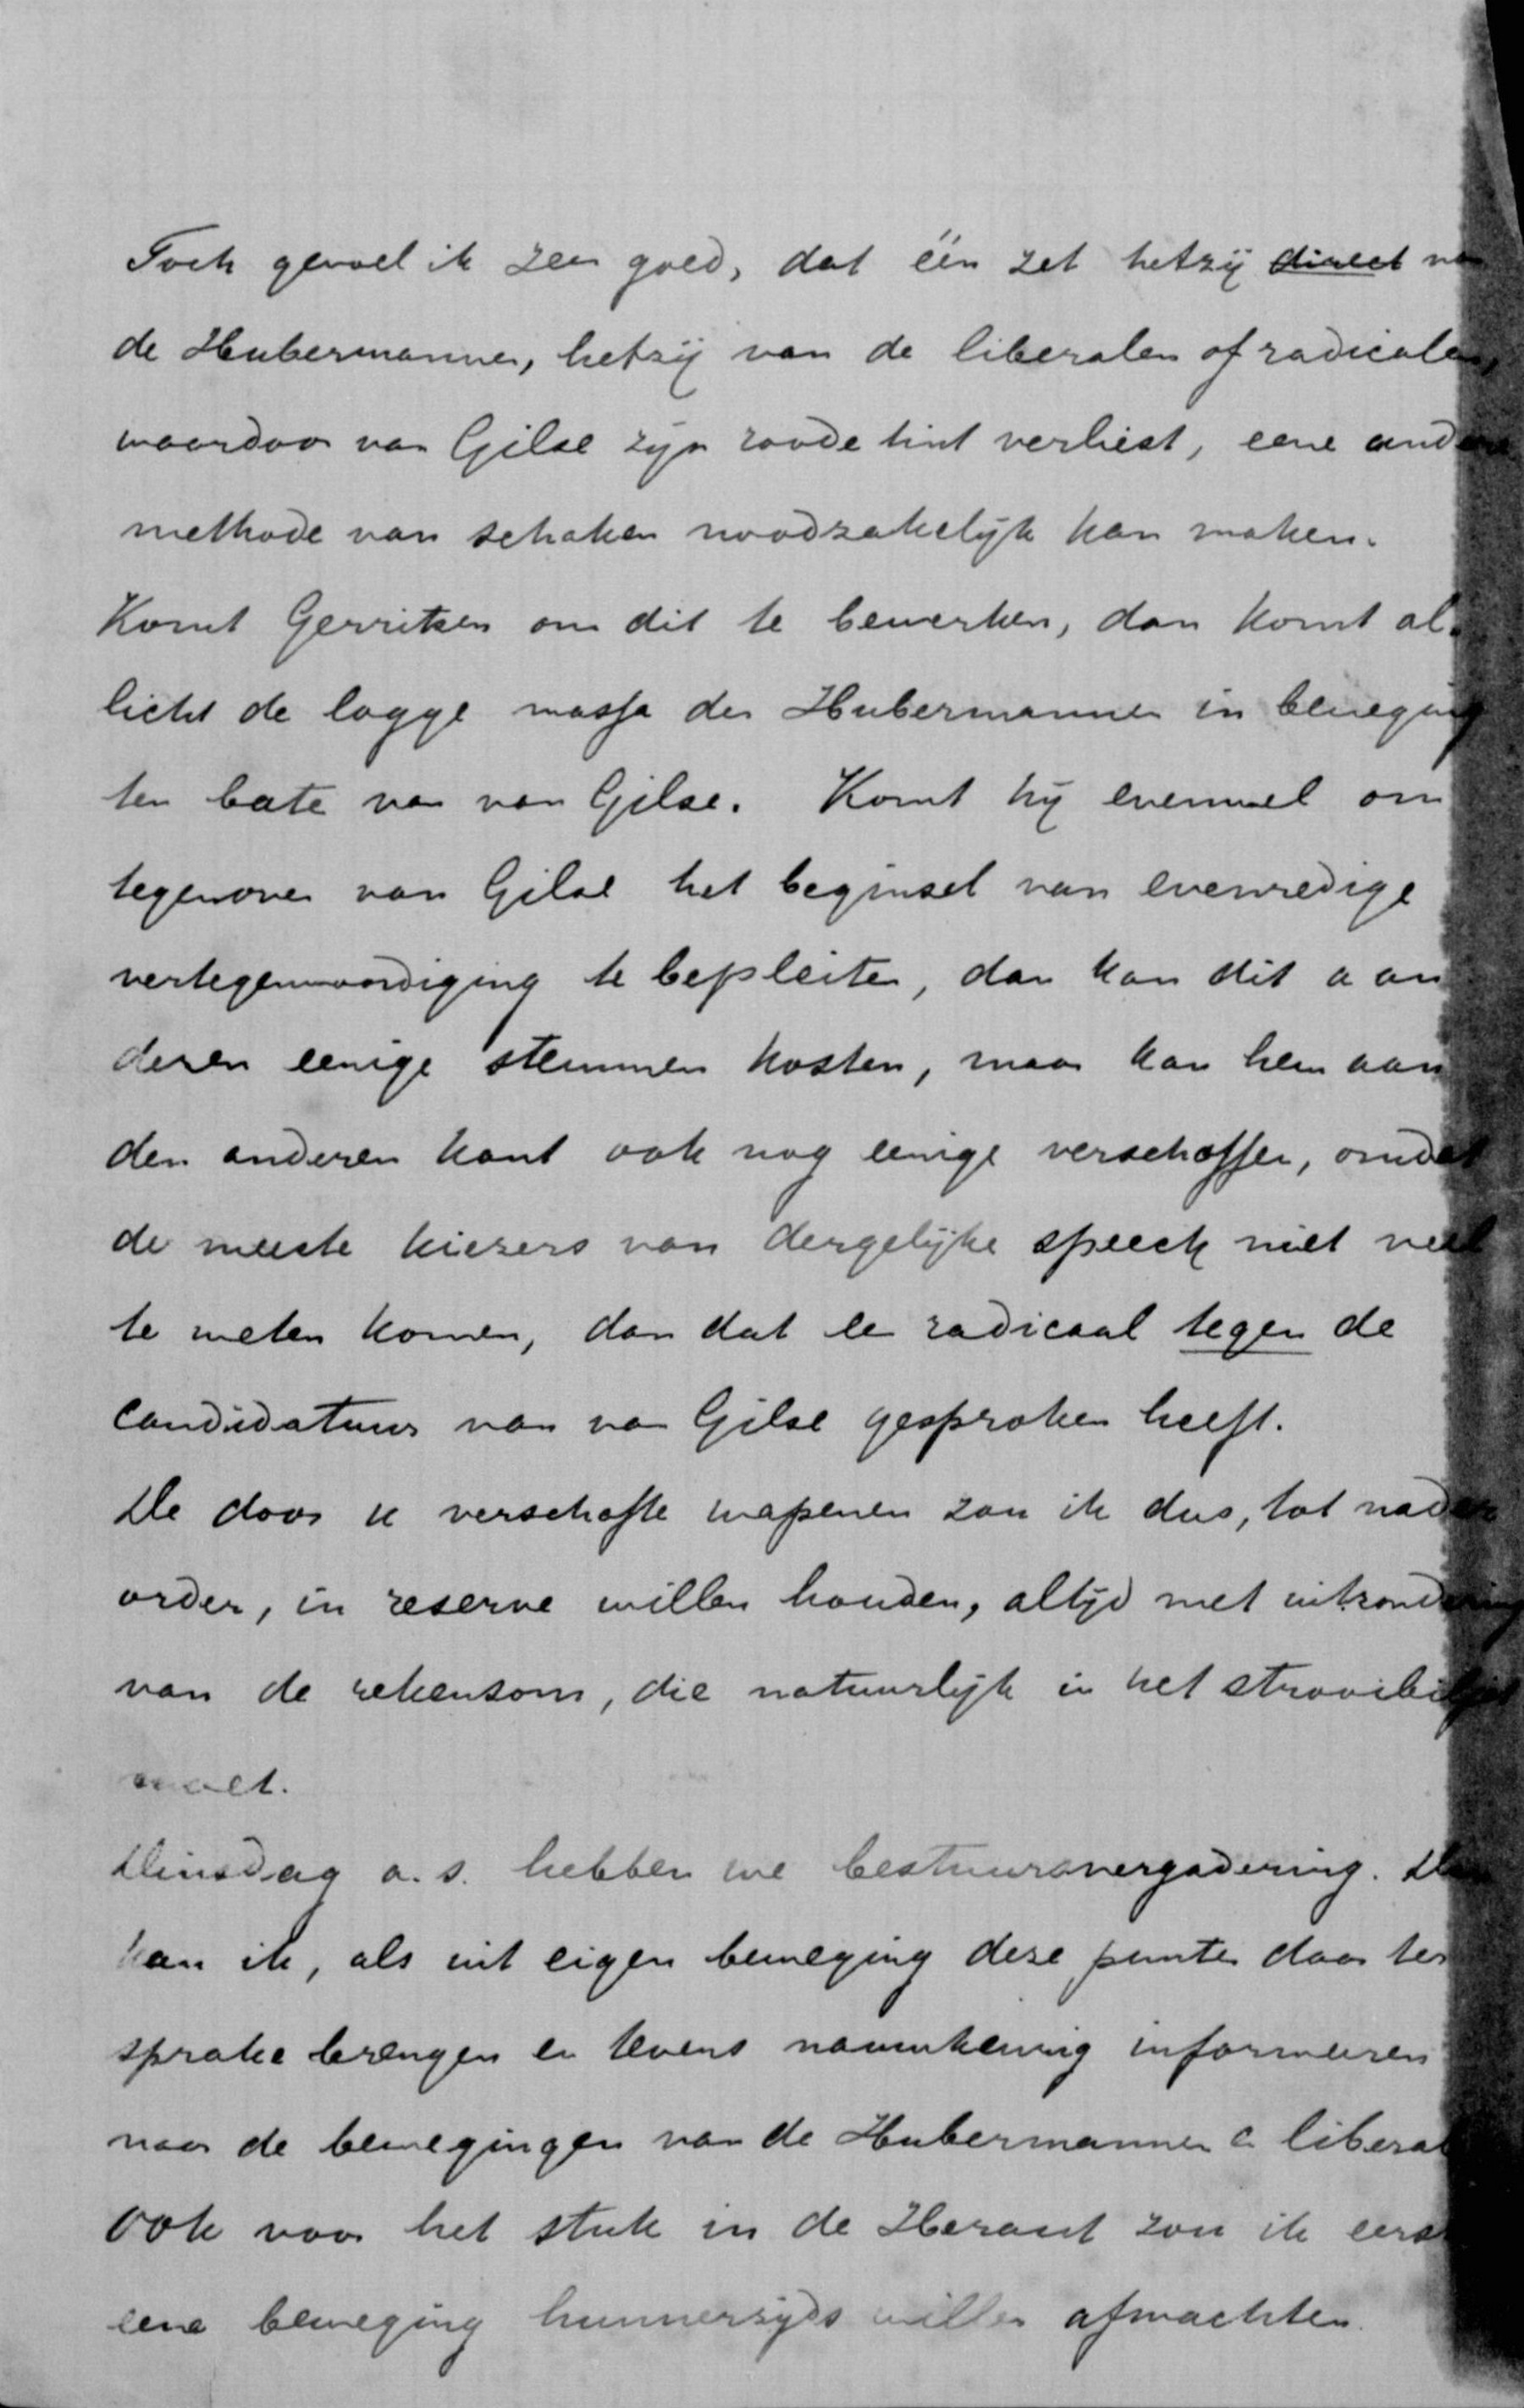 Toch gevoel ik zeer goed, dat één zet hetzij direct van
de Hubermannen, hetzij van de liberalen of radicalen,
waardoor van Gilse zijn roode tint verliest, eene andere
methode van schaken noodzakelijk kan maken.
Komt Gerritsen om dit te bewerken, dan komt al-
licht de logge massa der Hubermannen in beweging
ten bate van van Gilse. Komt hij evenwel om
tegenover van Gilse het beginsel van evenredige
vertegenwoordiging te bepleiten, dan kan dit a an
deren eenige stemmen kosten, maar kan hem aan
den anderen kant ook nog eenige verschaffen, omdat
de meeste kiezers van dergelijke speech niet veel
te weten komen, dan dat de radicaal tegen de
candidatuur van van Gilse gesproken heeft.
De door u verschafte wapenen zou ik dus, tot nader
order, in reserve willen houden, altijd met uitzondering
van de rekensom, die natuurlijk in het strooibiljet
moet.
Dinsdag a.s. hebben we bestuursvergadering. Dan
kan ik, als uit eigen beweging deze punten daar ter
sprake brengen en tevens nauwkeurig informeeren
naar de bewegingen van de Hubermannen & liberal
Ook voor het stuk in de Heraut zou ik eerst
eene beweging hunnerzijds willen afwachten.